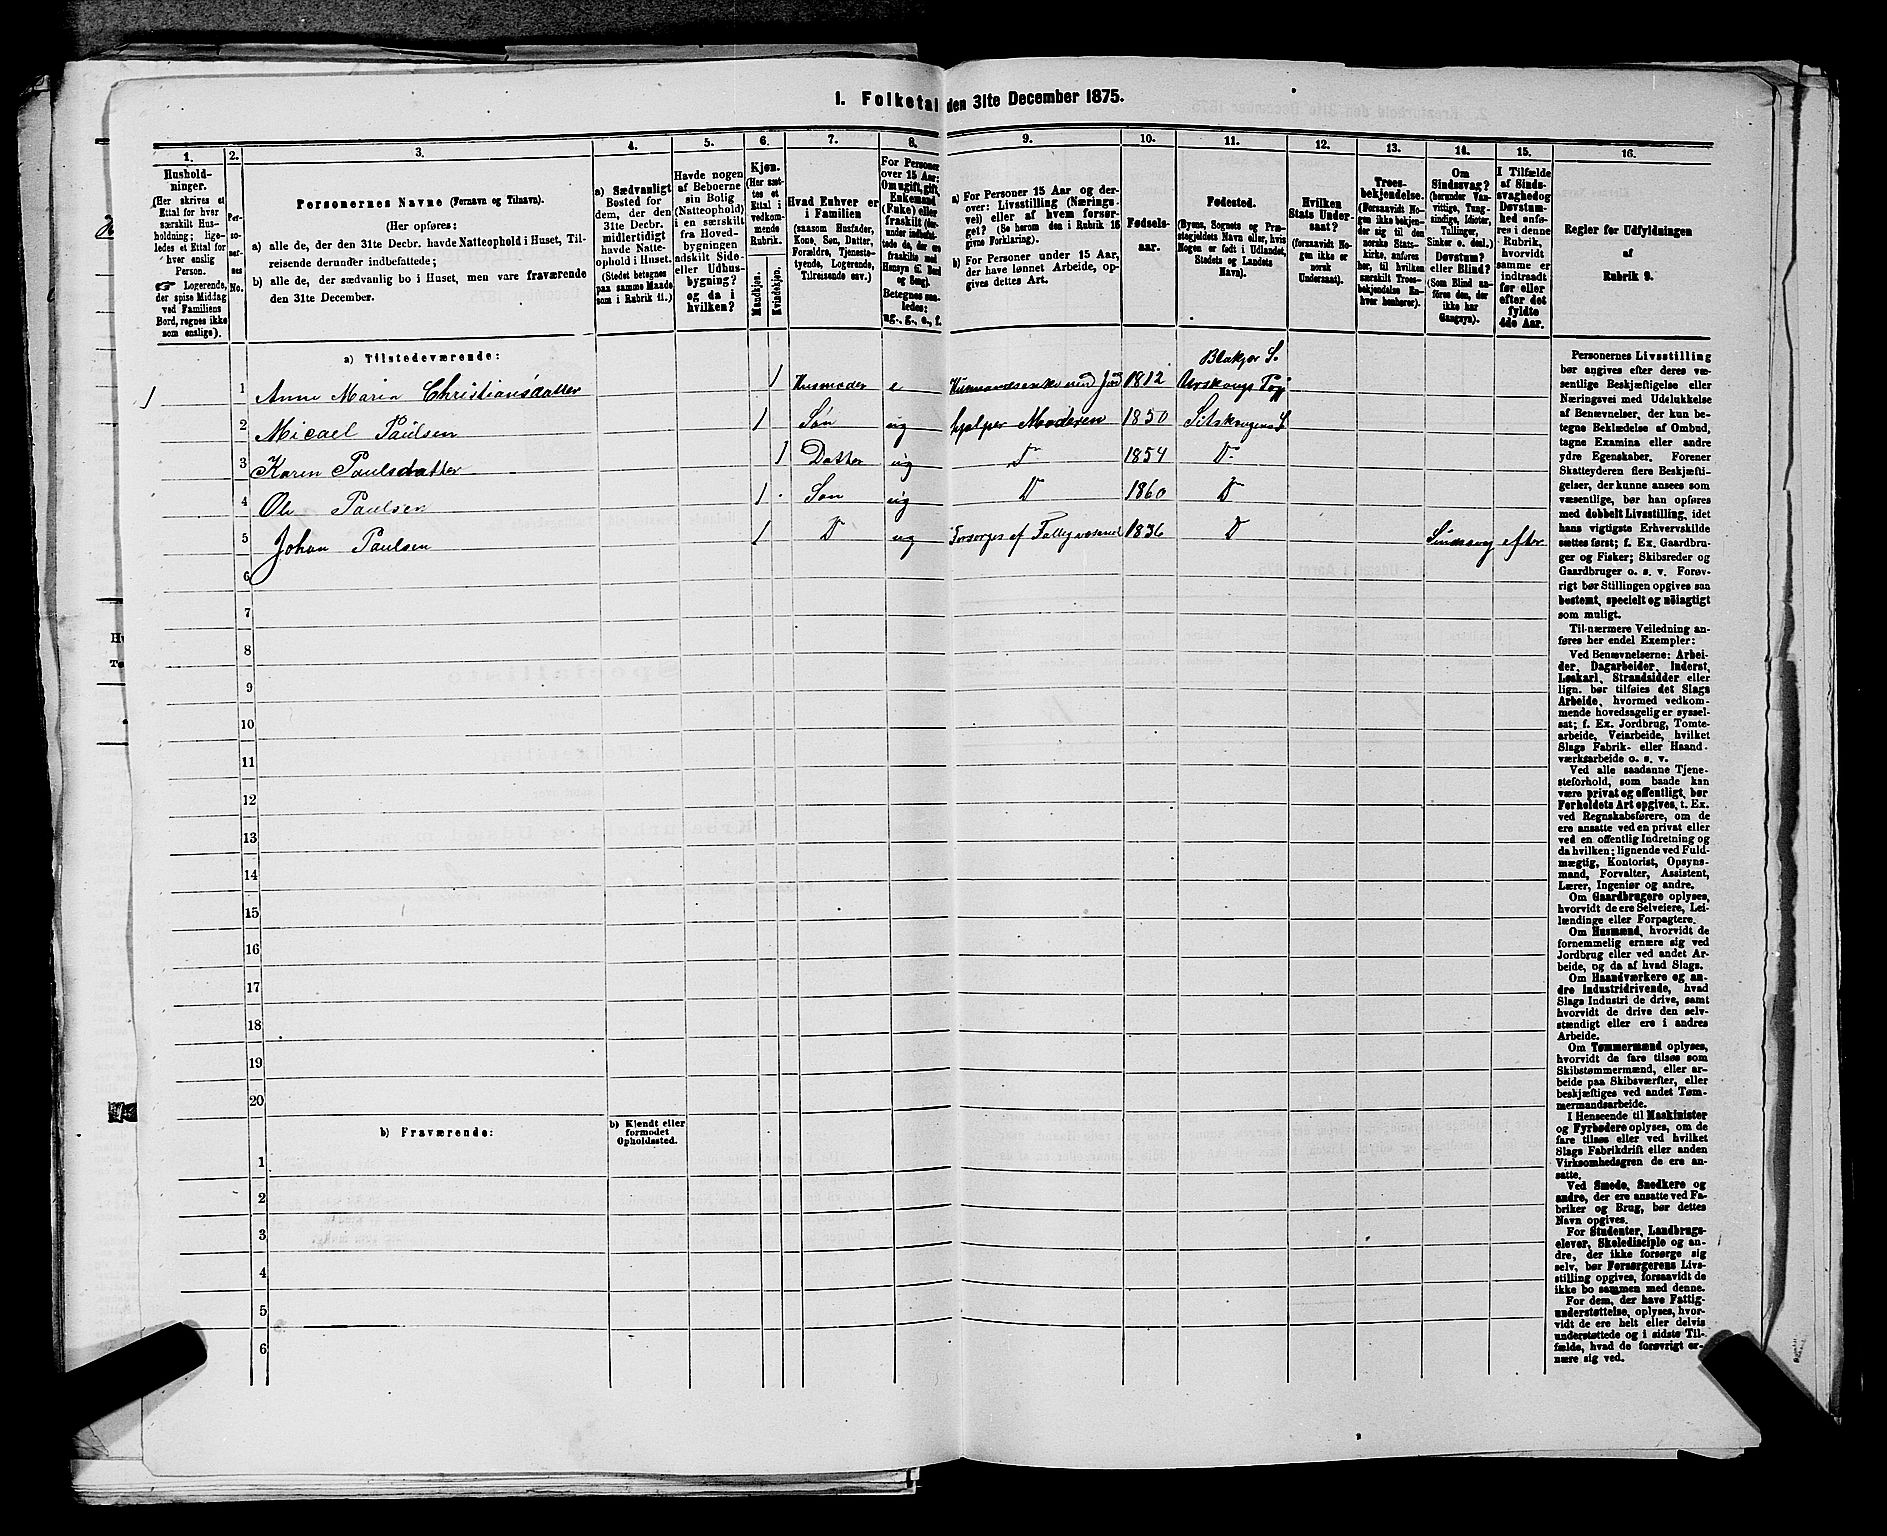 1. Folketal den 31te December 1875.
1. 2. 3. 4. 5. 6. 7. 8. 9. 10. 11. 12. 13. 14. 15. 16.
Hushold-
ninger.
(Her skrives et
Ettal for hver
særskilt Hus-
holdning; lige-
ledes et Ettal for
hver enslig
Person.
Logerende,
der spise Middag
ved Familiens
Bord, regnes ikke
som enslige).
Per-
so-
ner-
nes
No.
Personernes Navne (Fornavn og Tilnavn).
(Her opføres:
a) alle de, der den 31te Decbr. havde Natteophold i Huset, Til-
reisende derunder indbefattede;
b) alle de, der sædvanlig bo i Huset, men vare fraværende
den 31te December.
a) Sædvanligt
Bosted for
dem, der den
31te Decbr.
midlertidigt
havde Natte-
ophold i Huset.
(Stedet betegnes
paa samme Maade
som i Rubrik 11.)
Havde nogen
af Beboerne
sin Bolig
(Natteophold)
i en særskilt
fra Hoved-
bygningen
adskilt Side-
eller Udhus-
bygning?
og da i
hvilken?
Kjøn.
(Her sæt-
tes et
Ettal i
vedkom-
mende
Rubrik.
Mandkjøn.
Kvindekjøn.
Hvad Enhver er
i Familien
(saasom Husfader,
Kone, Søn, Datter,
Forældre, Tjeneste-
tyende, Logerende,
Tilreisende osv.)
For Personer
over 15 Aar:
Om ugift, gift,
Enkemand
(Enke) eller
fraskilt
Betegnes saa-
ledes:
ug., g., e., f.
a) For Personer 15 Aar og der-
over: Livsstilling (Nærings-
vei) eller af hvem forsør-
get? (Se herom den i Rubrik 16
givne Forklaring).
b) For Personer under 15 Aar,
der have lønnet Arbeide, op-
gives dettes Art.
Fødsels-
aar.
Fødested.
(Byens, Sognets og Præ-
stegjeldets Navn eller, hvis
Nogen er født i Udlandet,
Stedets og Landets
Navn).
Hvilken
Stats Under-
saat?
(forsaavidt No-
gen ikke er
norsk
Undersaat).
Troes-
bekjendelse.
(Forsaavidt No-
gen ikke bekjen-
der sig til den
norske Stats-
kirke, anføres
her, til hvilken
særskilt Troes-
bekjendelse En-
hver henhører).
Om
Sindssvag?
(herunder Van-
vittige, Tung-
sindige, Idioter,
Tullinger,
Sinker o. desl.)
Døvstum?
eller Blind?
(Som Blind an-
føres den, der
ikke har
Gangsyn).
I Tilfælde
af Sinds-
svaghed og
Døvstum-
hed anfø-
res i denne
Rubrik,
hvorvidt
samme er
indtraadt
før eller
efter det
fyldte
4de Aar.
Regler for Udfyldningen
af
Rubrik 9.
a) Tilstedeværende:
Blakjer S.
1 1 Anne Maria Christiansdatter 1 Husmoder e Husmandsenke med Jord 1812 Urskougs Pgj
2 Micael Paulsen 1 Søn ug hjælper Moderen 1850 S
3 Karen Paulsdatter 1 Datter ug D 1854 D
4 Ole Paulsen 1 Søn ug D 1860 D
5 Johan Paulsen 1 D ug Forsørges af Fattigvæsenet 1836 D Sindssvag efter
6
7
8
9
10
11
12
13
14
15
16
17
18
19
20
b) Fraværende:
b) Kjendt eller
formodet
Opholdssted.
1
2
3
4
5
6
Personernes Livsstilling
bør angives efter deres væ-
sentlige Beskjæftigelse eller
Næringsvei med Udelukkelse
af Benævnelser, der kun be-
tegne Beklædelse af Ombud,
tagne Examina eller andre
ydre Egenskaber. Forener
Skatteyderen flere Beskjæfti-
gelser, der kunne ansees som
væsentlige, bør han opføres
med dobbelt Livsstilling, idet
hans vigtigste Erhvervskilde
sættes først; f. Ex. Gaardbru-
ger og Fisker; Skibsreder og
Gaardbruger o. s. v. Forøv-
rigt bør Stillingen opgives saa
bestemt, specielt og nøiagtigt
som muligt.
Til nærmere Veiledning an-
føres her endel Exempler:
Ved Benævnelserne: Arbei-
der, Dagarbeider, Inderst,
Løskarl, Strandsidder eller
lign. bør tilføies det Slags
Arbeide, hvormed vedkom-
mende hovedsagelig er syssel-
sat; f. Ex. Jordbrug, Tomte-
arbeide, Veiarbeide, hvilket
Slags Fabrik- eller Haand-
værksarbeide o. s. v.
Ved alle saadanne Tjene-
steforhold, som baade kan
være privat og offentligt, bør
Forholdets Art opgives, t. Ex.
ved Regnskabsførere, om de
ere ansatte ved en privat eller
ved en offentlig Indretning og
da hvilken; lignende ved Fuld-
mægtig, Kontorist, Opsyns-
mand, Forvalter, Assistent,
Lærer, Ingeniør og andre.
Om Gaardbrugere oplyses,
hvorvidt de ere Selveiere, Lei-
lændinge eller Forpagtere.
Om Husmænd, hvorvidt de
fornemmelig ernære sig ved
Jordbrug eller ved andet Ar-
beide, og da af hvad Slags.
Om Haandværkere og an-
dre Industridrivende, hvad
Slags Industri de drive, samt
hvorvidt de drive den selv-
stændigt eller ere i andres
Arbeide.
Om Tømmermænd oplyses,
hvorvidt de fare tilsøs som
Skibstømmermænd, eller ar-
beide paa Skibsværfter, eller
beskjæftiges ved andet Tøm-
mermandsarbeide.
I Henseende til Maskinister
og Fyrbødere oplyses, om de
fare tilsøs eller ved hvilket
Slags Fabrikdrift eller anden
Virksomhedsgren de ere an-
satte.
Ved Smede, Snedkere og
andre, der ere ansatte ved Fa-
briker og Brug, bør dettes
Navn opgives.
For Studenter, Landbrugs-
elever, Skoledisciple og an-
dre, der ikke forsørge sig
selv, bør Forsørgerens Livs-
stilling opgives, forsaavidt de
ikke bo sammen med denne.
For dem, der have Fattig-
understøttelse, oplyses, hvor-
vidt de ere helt eller delvis
understøttede og i sidste Til-
fælde, hvad de forøvrigt er-
nære sig ved.